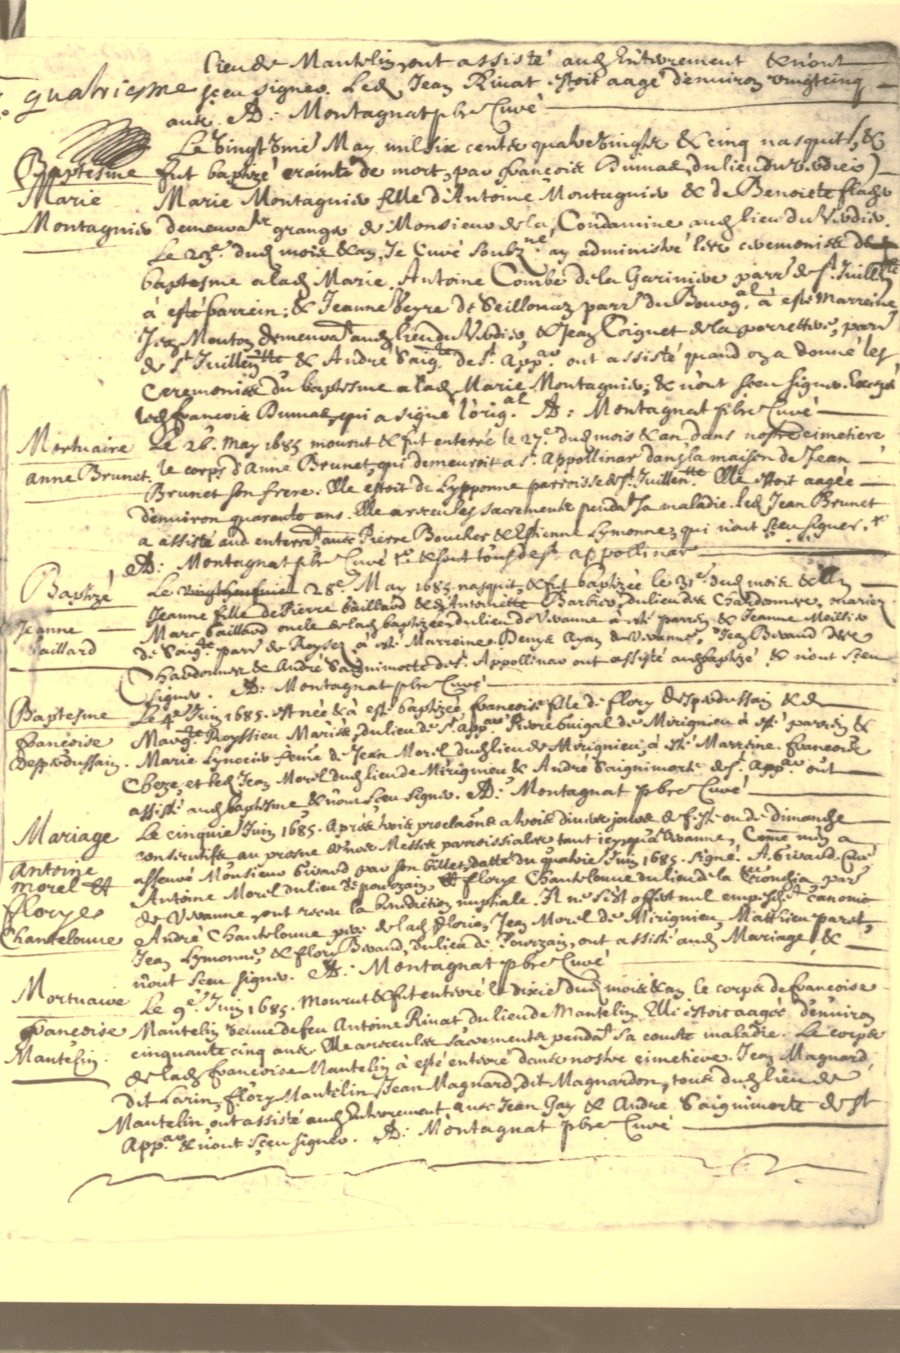 lieu de Mantelin, ont assisté aud Enterrement & n'ont
quatriesme sceu signer. Led Jean Rivat estoit aagé d'environ vingt cinq
ans. A: Montagnat pbre Curé
Le vingt me May mil six cents quatre vingts & cinq nasquit, &
Baptesme fut baptizé crainte de mort, par françois Dumas, du lieu du
Marie Marie Montagnier fille d'Antoine Montagnier & de Benoiete
Montagnier demeurant granger de Monsieur de la Condamine aud lieu du
Le 23e dud mois & an, Je Curé soubzne ay administré les ceremonies de
baptesme a lad Marie, Antoine Combe de la parr de St Juillin
à esté parrein; & Jeanne Veyre de parr du Bourg à esté Marreine
Jean Mouton demeurant aud lieu du & Jean Coignet de la parr
de St Juillin & André Saig. de St Appar ont assisté quand on a donné les
Ceremonies du baptesme a lad Marie Montagnier; & n'ont sceu signer. Excepté
led françois Dumas, qui a signé l'orig.al A: Montagnat pbre Curé
Mortuaire Le 26. May 1685 mourut & fut enterré le 27e dud mois & an, dans nostre cimetiere
Anne Brunet. le corps d'Anne Brunet, qui demeuroit a St. Appollinar dans la maison de Jean
Brunet son frere. Elle estoit de Lypponne parroisse de St. Juillen Elle estoit aagée
d'environ quarante ans. Elle a receu les sacrements pendt sa maladie. led Jean Brunet
a assisté aud enterremt avec Pierre Boucher & Estienne Lymonne, qui n'ont sceu signer.
A: Montagnat pbre Curé & sont tous de St appollinar
Baptizé Le 28e May 1685 nasquit, & fut baptizée le 31e dud mois & an
Jeanne Jeanne fille de Pierre Gaillard & d'Antoinette Barbier, du lieu des Chardonnere, mariez
Gaillard Marc Gaillard oncle de lad baptizée, du lieu de Vivanne à esté parrein & Jeanne
de parr de à esté Marreine. Denys de Vivanne, Jean Bevaud
Chardonner & André Saignimorte de St. Appollinar ont assisté aud baptizé, & n'ont sceu
signer. A: Montagnat pbre Curé
Baptesme Le 4e Juin 1685. est née & à esté baptizée, françoise fille de flory Despredussain & de
françoise Marg.te Royssieu Mariés, du lieu de St. Appar Pierre de Mirignieu à esté parrein &
Despredussain. Marie femme de Jean Morel dud lieu de Mirignieu, à esté Marreine. françois
Cheze, et led Jean Morel dud lieu de Mirignieu & André Saignimorte de St. Appar ont
assisté aud baptesme & n'ont sceu signer. A: Montagnat pbre Curé
Mariage Le cinquie Juin 1685. Après trois proclaons a trois divers jours de feste ou de dimanche
Antoine consecutifs au prosne de nos Messes parroissiales tant icy qu'a Vivanne, Come m'en a
Morel et asseuré Monsieur Giraud par son billet, datté du quatrie Juin 1685. Signé. A. Giraud. Curé
florye Antoine Morel du lieu de pourzain, Et florye Chantelonne du lieu de la parr
Chantelonne de Vivanne, ont receu la benediction nuptiale. Il ne s'est offert nul empeschemt canonic
André Chantelonne pere de lad florie, Jean Morel de Mirignieu, Matthieu paret,
Jean Lymonne, & flory Bevaud, du lieu de Pourzain, ont assisté aud Mariage &
n'ont sceu signer. A: Montagnat pbre Curé
Mortuaire Le 9e Juin 1685. Mourut & fut enterré le dixie dud mois & an le corps de françoise
françoise Mantelin veuve de feu Antoine Rivat du lieu de Mantelin. Elle estoit aagée d'environ
Mantelin cinquante cinq ans. Elle a receu les sacrements pendt sa courte maladie. Le corps
de lad françoise Mantelin à esté enterré dans nostre cimetiere. Jean Magnard
dit Larin, flory Mantelin, Jean Magnard, dit Magnardon, tous dud lieu de
Mantelin, ont assisté aud Enterrement, avec Jean Gay & André Saignimorte de St
Appar & n'ont sceu signer. A: Montagnat pbre Curé